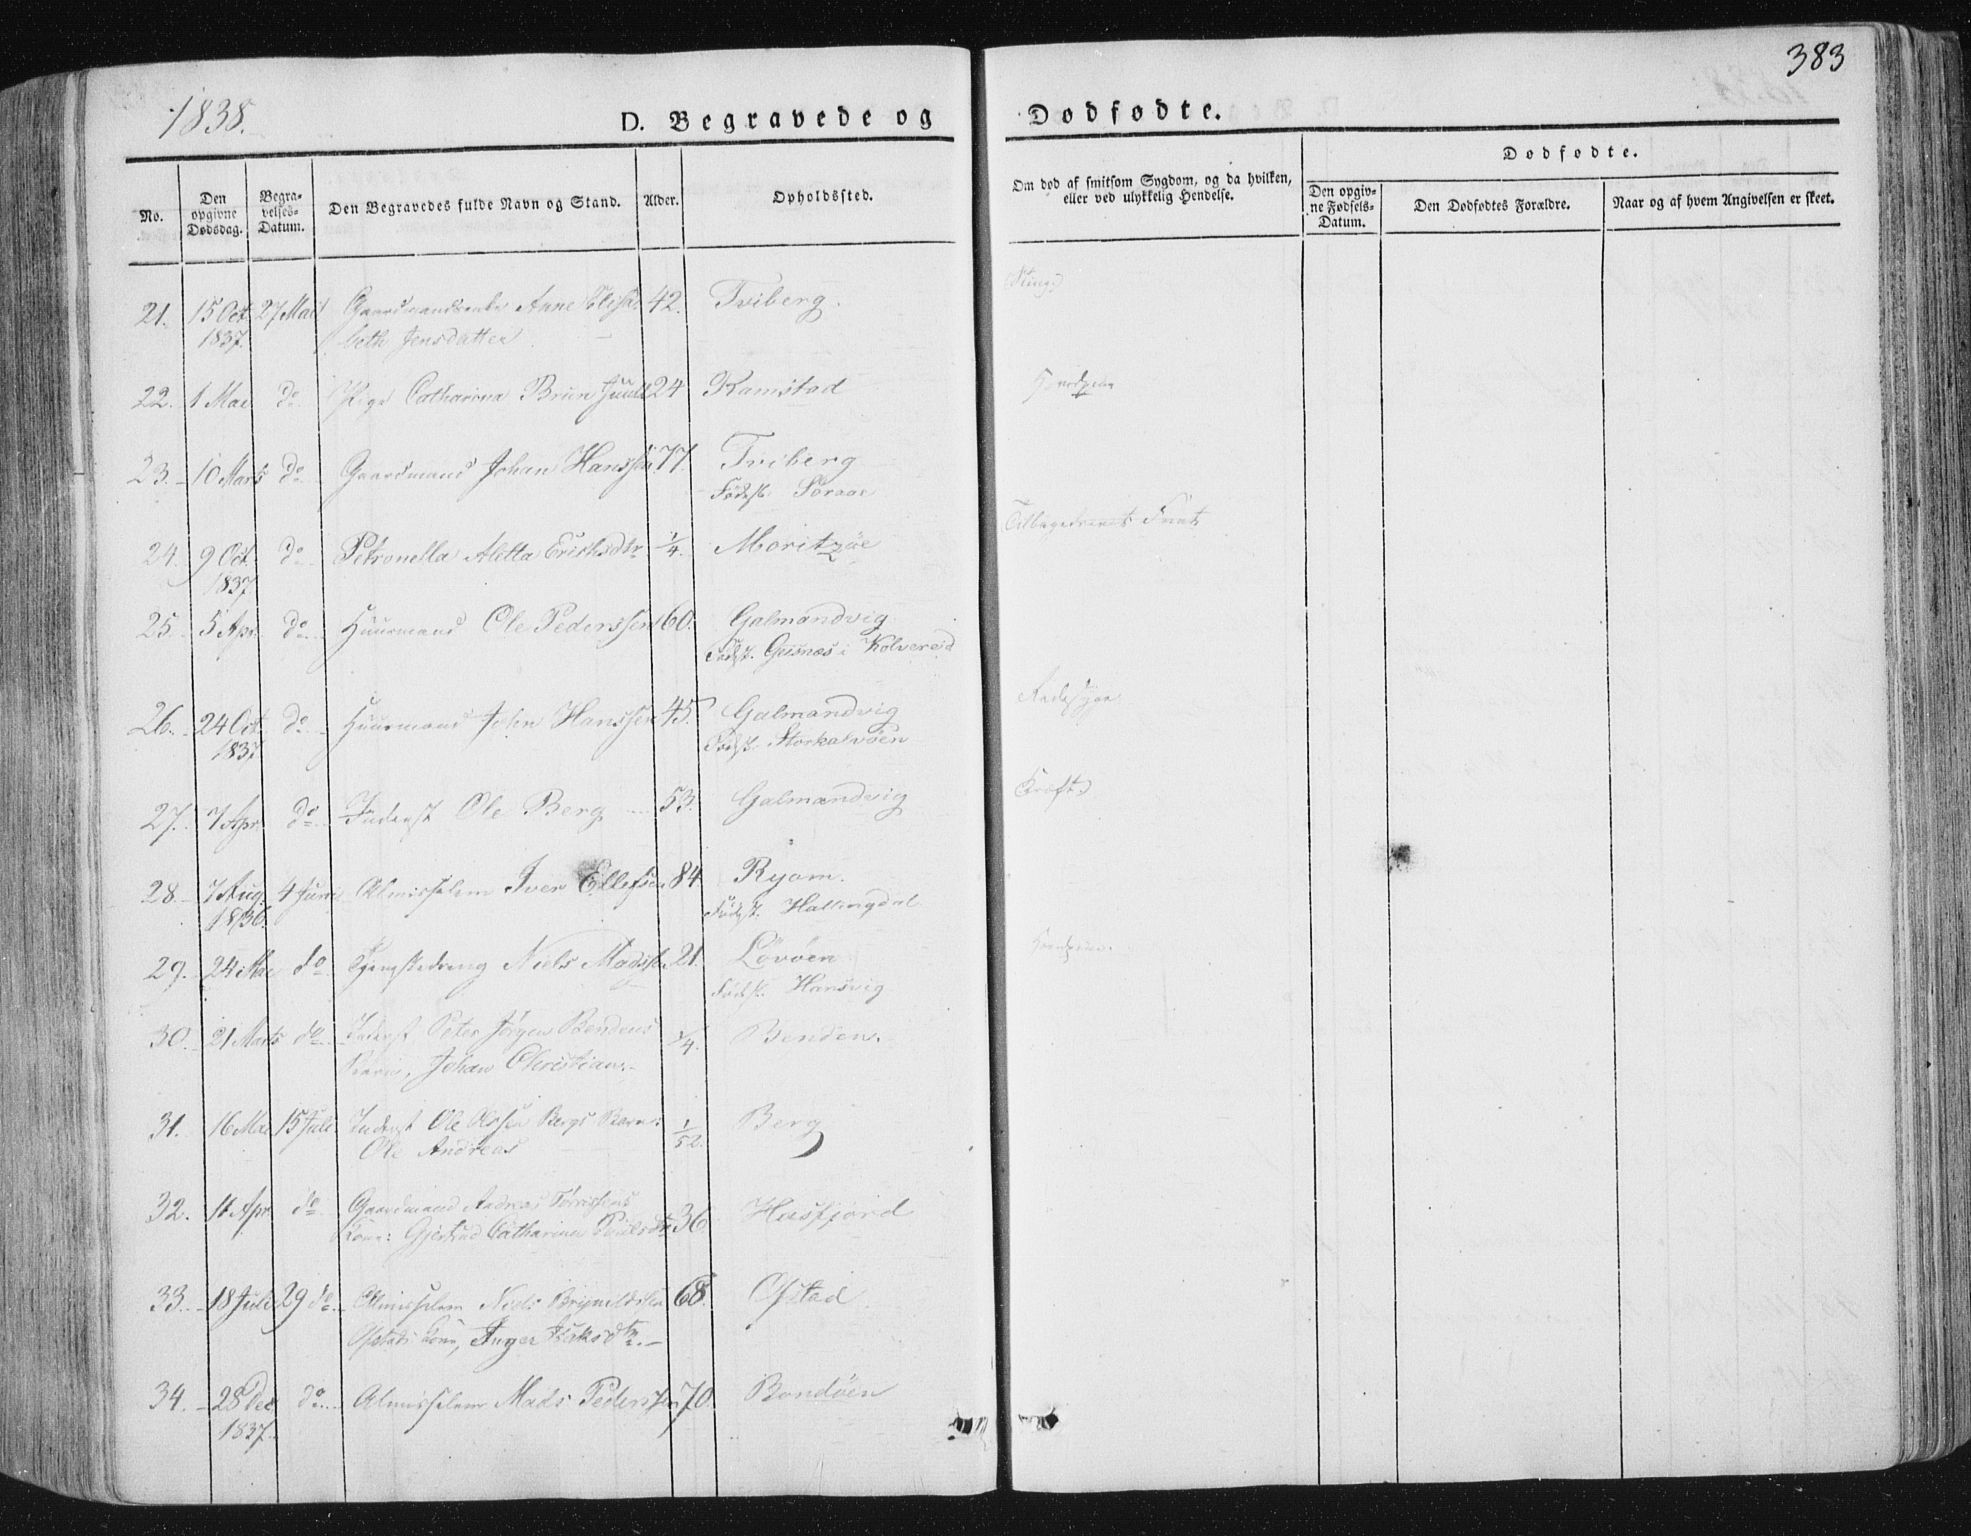 383
1838.
D. Begravede og Dødfødte.
No.
Den opgivne Dødsdag.
Begravelses-Datum.
Den Begravedes fulde Navn og Stand.
Alder.
Opholdssted.
Om død af smitsom Sygdom, og da hvilken, eller ved ulykkelig Hendelse.
Dødfødte.
Den opgivne Fødsels-Datum.
Den Dødfødtes Forældre.
Naar og af hvem Angivelsen er skeet.
21. 15 Oct 27 Mai Gaardmandsenke Anne Elisa 42. Tviberg.
1837. beth Jensdatter
22. 1 Mai do Pige Catharina Brun Juul 24 Ramstad
23. 10 Marts do Gaardmand Johan Hanssen 77 Tviberg
Fødest. Soraae
24. 9 Oct. do Petronella Aletta Ericksdtr 1/4. Moritzöe
1837
25. 5 Apr. do Huusmand Ole Pederssen 60. Galmandvig
Fødst. Gusnæs i Kolvereid
26. 24 Oct. do Huusmand John Hanssen 45. Galmandvig
1837 Fødst. Storkalvöen
27. 7 Apr. do Inderst Ole Berg 53. Galmandvig Kræft
28. 7 Aug. 4 Juni Almisselem Iver Ellefsen 84. Ryom.
1836. Fødst. Hallingdal
29. 24 Mai do Tjenestedreng Niels Madss. 21. Lövöen
Fødst. Hansvig
30. 21 Marts do Inderst Peter Jörgen Bendens /4. Benden.
Barn, Johan Christian.
31. 16 Mai 15 Juli Inderst Ole Olssen Bergs Barn: 1/52. Berg
Ole Andreas
32. 11 Apr do Gaardmand Andreas Torrissens
Kone: Gjertrud Catharina Poulsdtr 36 Hasfjord
33. 18 Juli 29 do Almisselem Niels 68. Ofstad
Ofstads Kone, Inger
34. 28 Dec do Almisselem Mads Pederssen 70. Bondöen
1837.